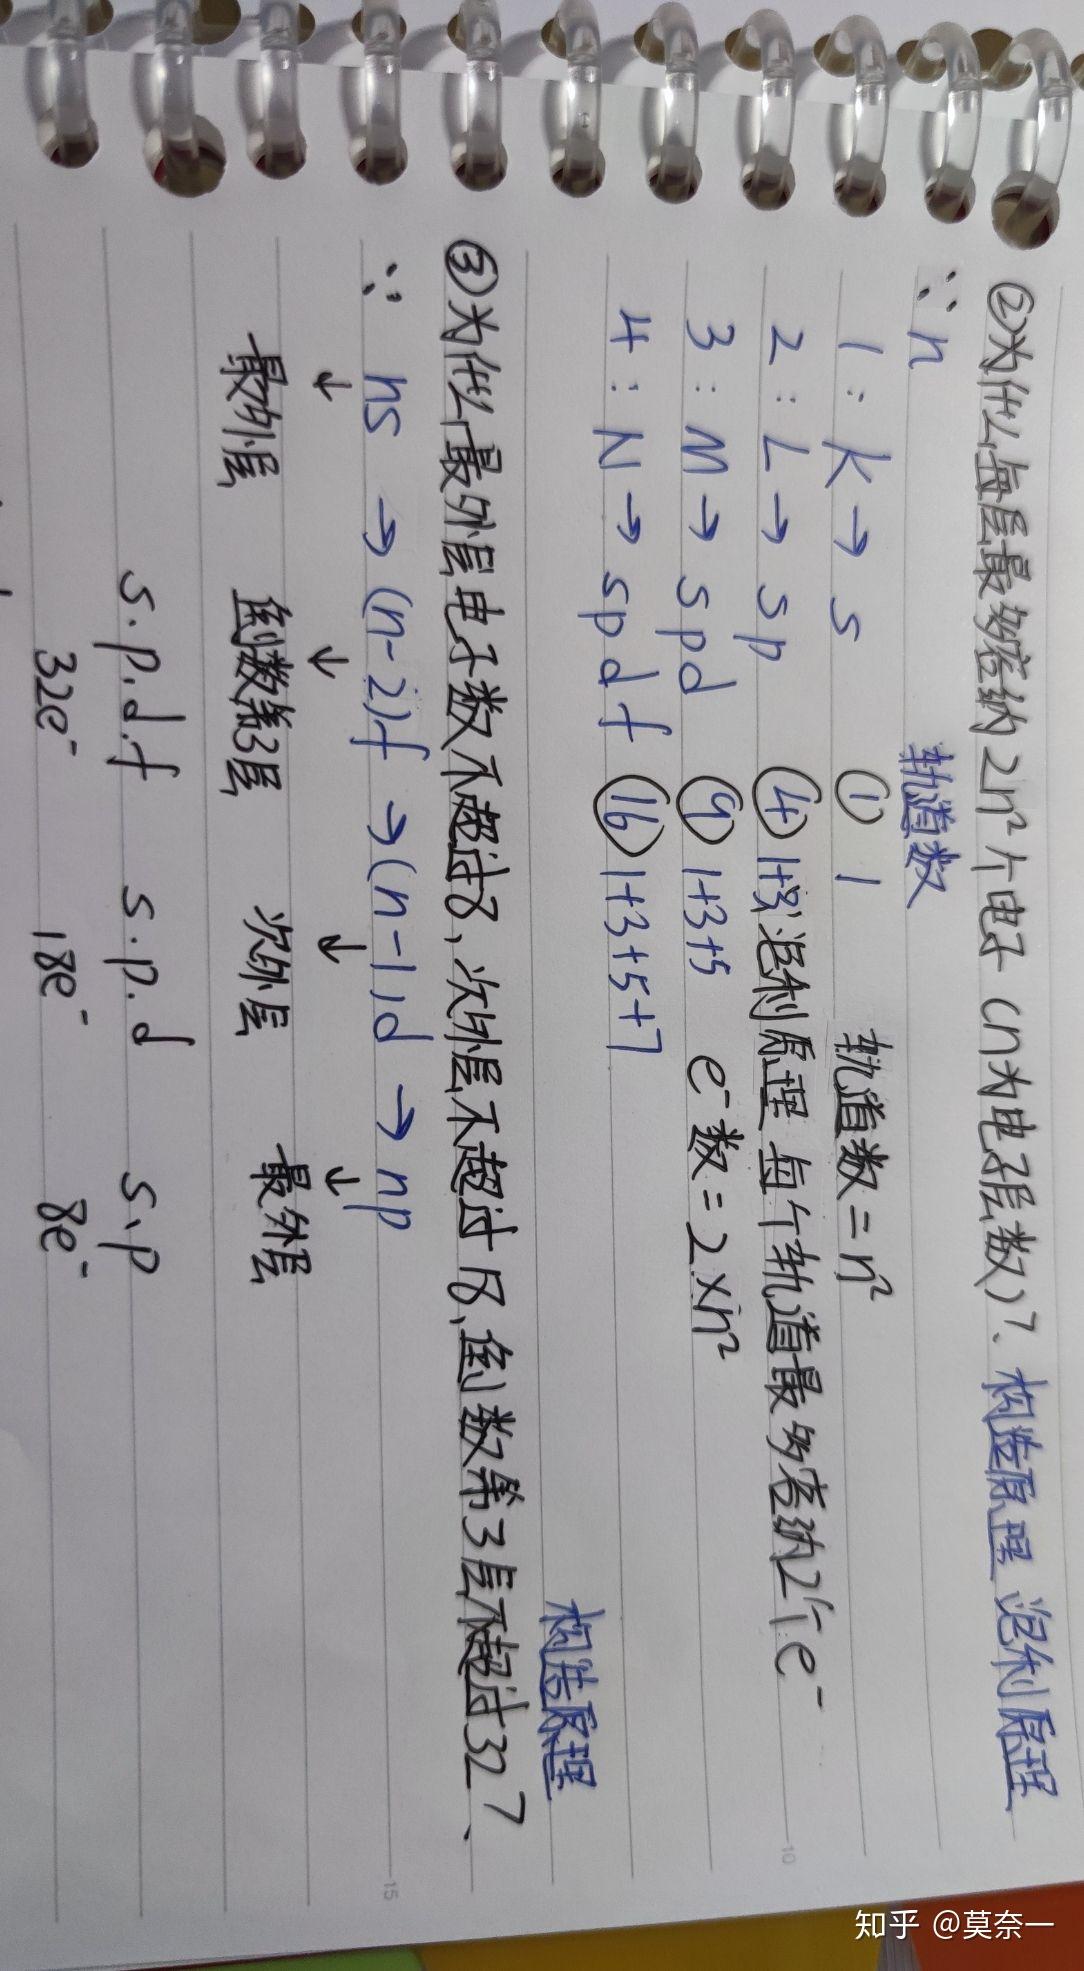 ②为什么每层最多容纳2n²个电子(n为电子层数)?、构造原理 泡利原理
∵ n 轨道数
1 : K → s ① 1 轨道数=n²
2 : L → sp ④ 1+3 泡利原理 每个轨道最多容纳2个e⁻
3 : M → spd ⑨ 1+3+5 e⁻数=2×n²
4 : N → spdf ⑯ 1+3+5+7
构造原理
③为什么最外层电子数不超过8、次外层不超过18、倒数第3层不超过32?、
∵ ns → (n-2)f → (n-1)d → np
↓ ↓ ↓ ↓
最外层 倒数第3层 次外层 最外层
s.p.d.f s.p.d s、p
32e⁻ 18e⁻ 8e⁻
10
15
知乎 @莫奈一